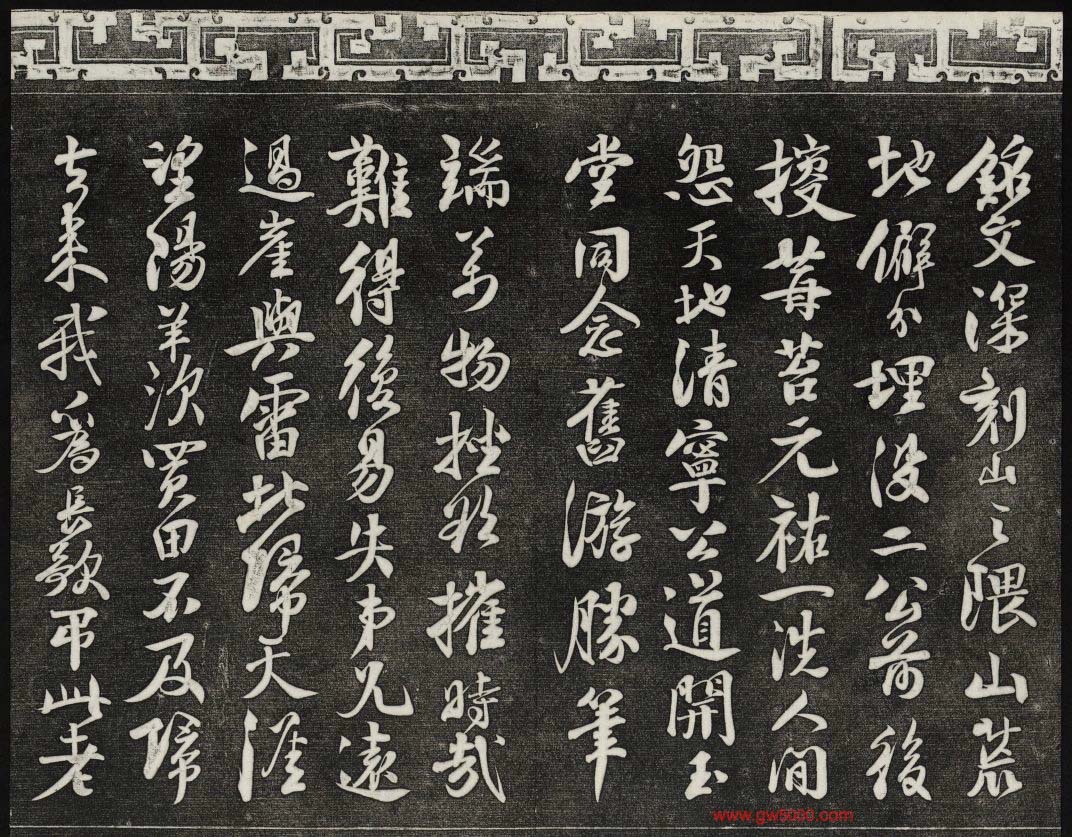 銘文深刻山之隈山荒
地僻分埋没二公前後
援莓苔元祐一洗人間
怨天地清寧公道開玉
堂同念舊游勝筆
端萬物挫欲摧時哉
難得復易失弟兄遠
過崖與雷北歸天涯
望陽羨買田不及歸
去來我爲長歌吊此老
www.gw5000.com